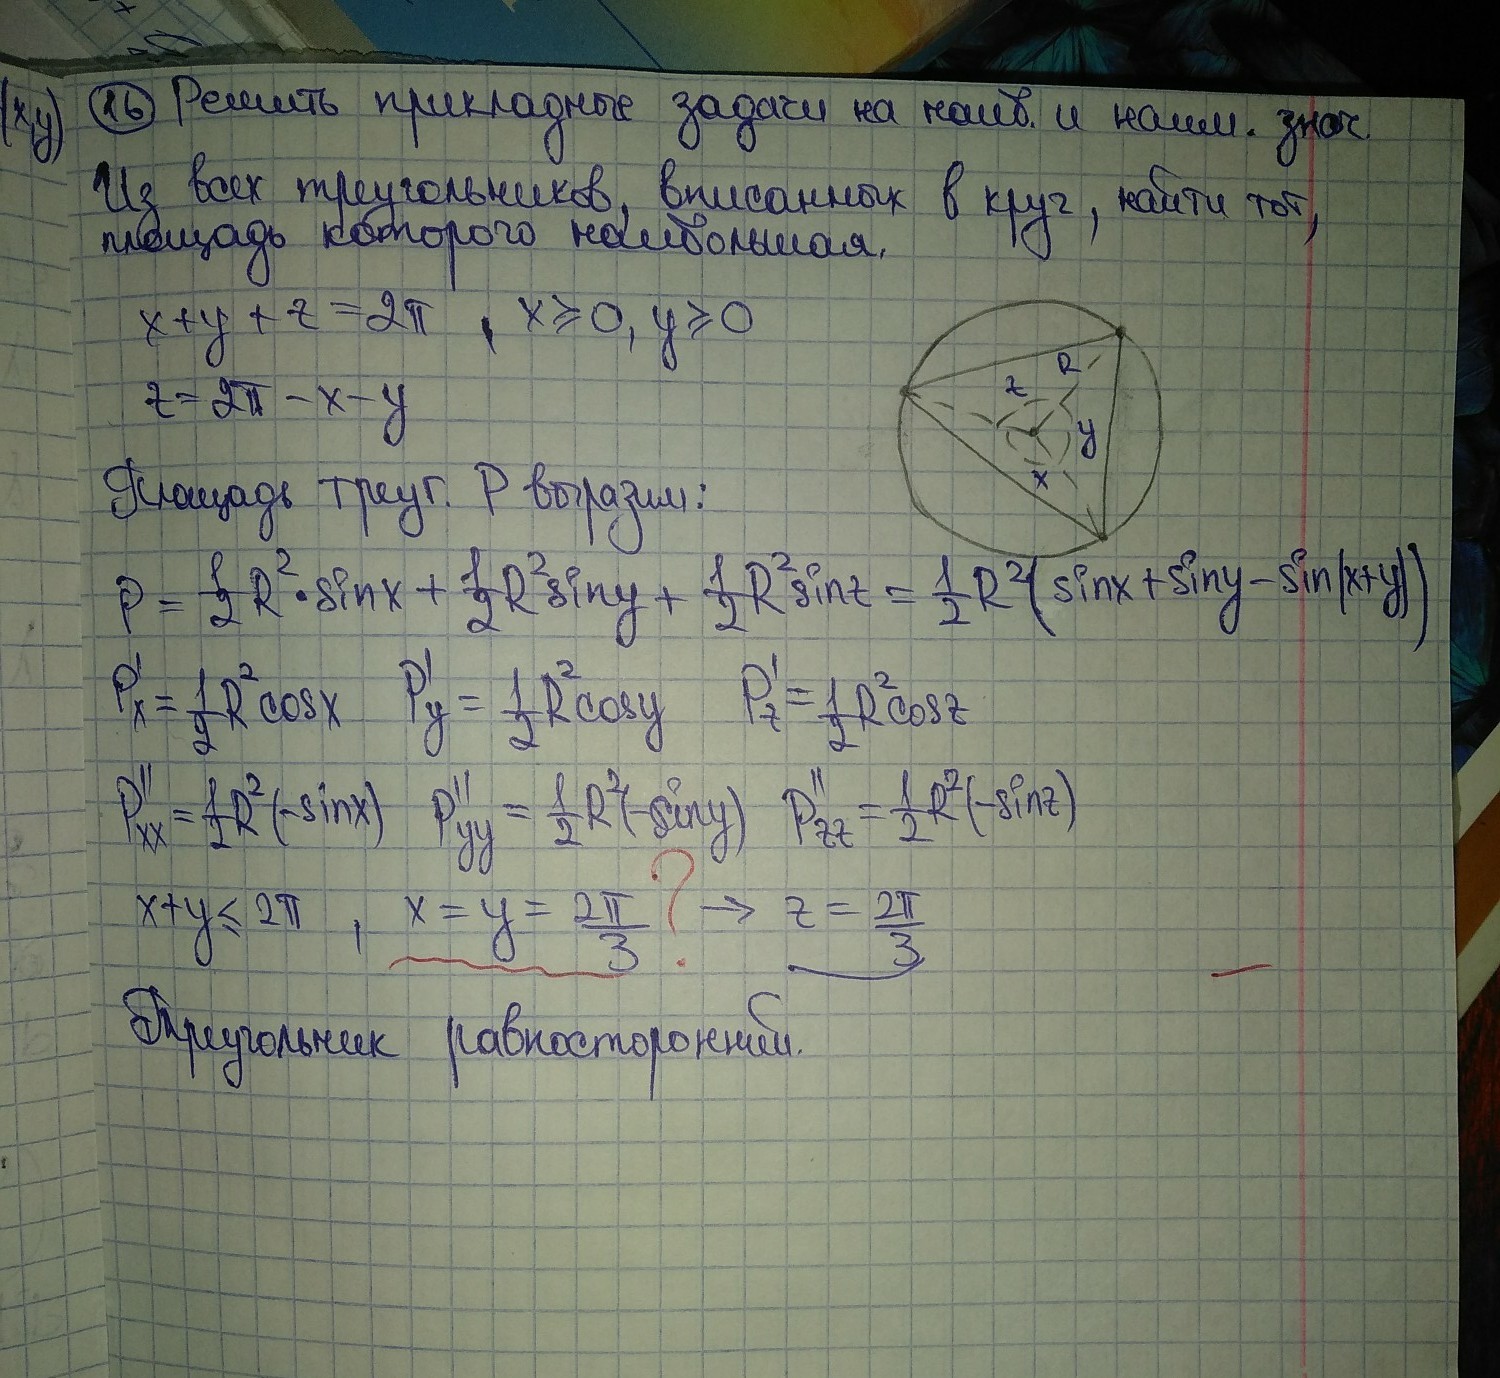 (x,y) 16 Решить прикладные задачи на наиб. и наим. знач
Из всех треугольников, вписанных в круг, найти тот,
площадь которого наибольшая.
x+y+z=2π , x≥0, y≥0
z=2π-x-y
R
z
y
x
Площадь треуг. P выразим:
P = 1/2 R²·sinx + 1/2 R²siny + 1/2 R²sinz = 1/2 R²(sinx+siny-sin(x+y))
P'x = 1/2 R²cosx P'y = 1/2 R²cosy P'z = 1/2 R²cosz
P''xx = 1/2 R²(-sinx) P''yy = 1/2 R²(-siny) P''zz = 1/2 R²(-sinz)
x+y≤2π , x=y=2π/3 ? → z=2π/3
Треугольник равносторонний.